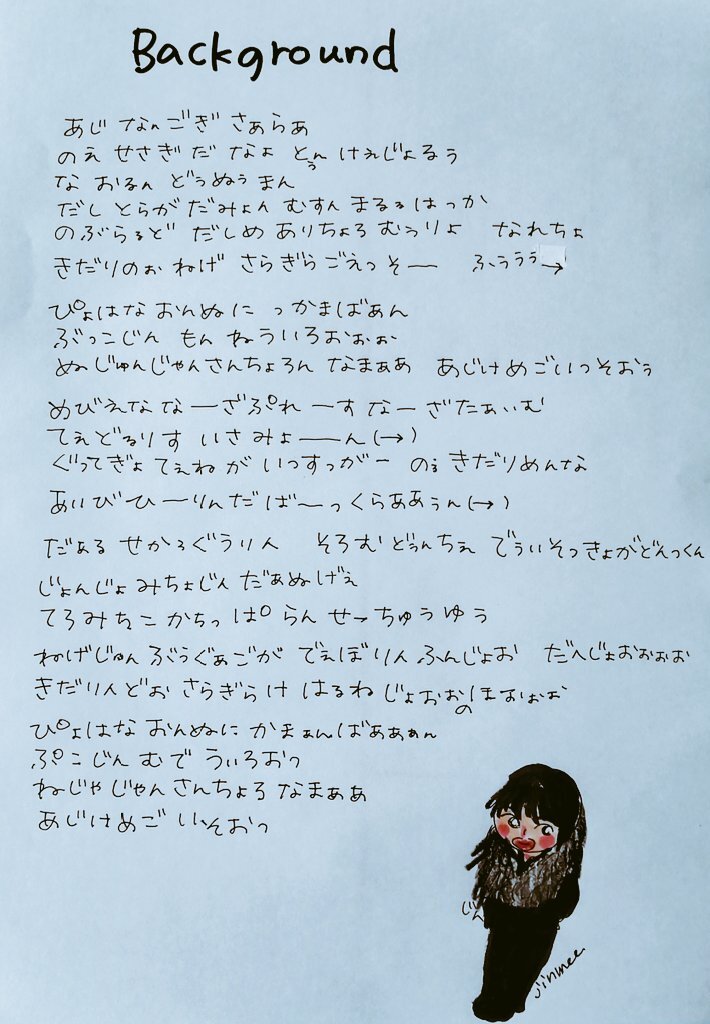 Background
あじ なんごぎ さぁらぁ
のえ せさぎ だ なよ とぅん けぇじょるぅ
な おるん どぅぬぅ まん
だし とらが だみょん むすん まるるはっか
のぶらるど だしめ ありちょろ むっりよ なれちょ
きだりのぉ ねげ さらぎら ごえっそー ふぅぅぅ→
ぴょはな おんぬに っかまばぁん
ぶっこじん もん ねういろおぉぉ
ぬじゅんじゃんさんちょろん なまぁあ あじけめごいっそおぅ
めびえな なーざぷれーす なーざたぁいむ
てぇどるりす いさみょーん(→)
ぐってぎょ てぇねが いっすっがー のぇ きだりめんな
あいびひーりんだばーっくらああぅん(→)
だぁる せかろぐうりん そろむどぅんちぇ でぅいそっきょがどえっくん
じょんじょ みちょじん だぁぬげぇ
てろみちこ かちっぱ らん せっちゅうゆぅ
ねげじゅん ぶぅぐぁごが でぇぼりん ふんじょお だへじょおおぉお
きだりんどぉ さらぎらけ はるね じょおおのほおぉぉ
ぴょはな おんぬに かまぁんばああぁん
ぷこじん むで ういろおっ
ねじゃじゃん さんちょろ なまぁあ
あじけめご いそおっ
じん
jinmee